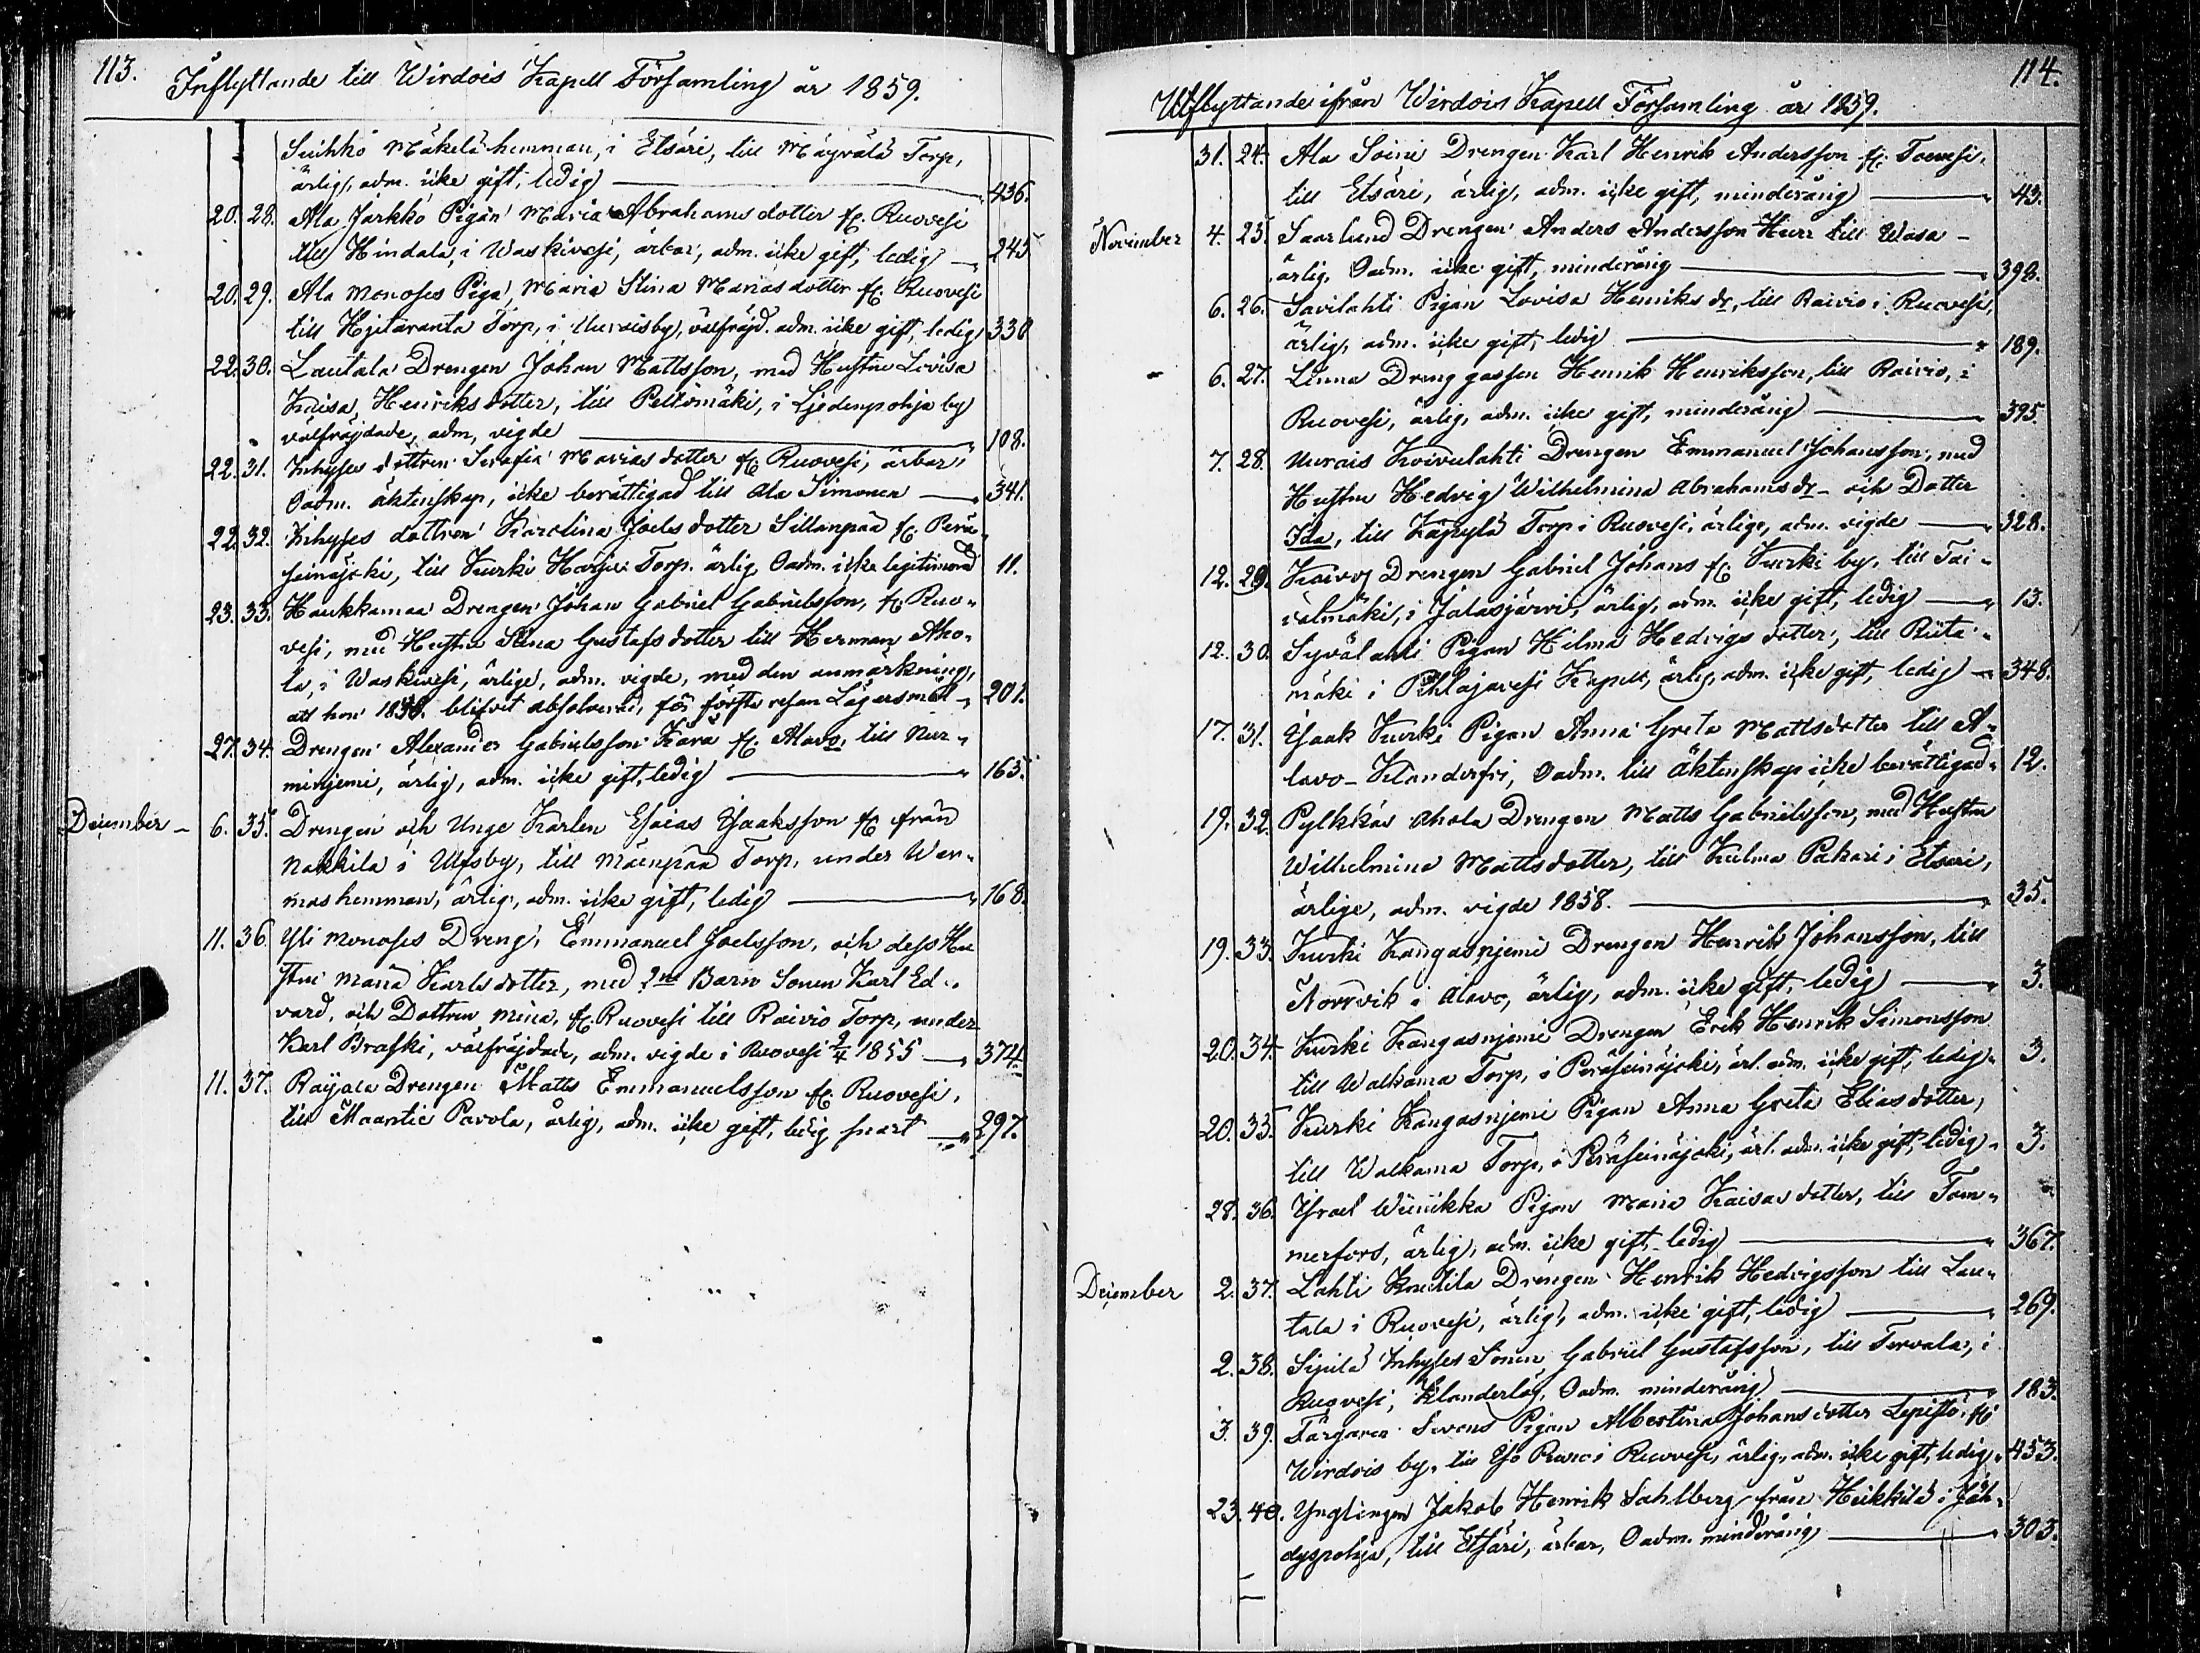 113.
Inflyttande till Wirdois Kapell Församling år 1859.
Suihko Mäkelä hemman, i Etsäri, till Mäyrälä Torp,
ärlig, adm. icke gift, ledig 436.
20. 28. Ala Järkkö Pigan Maria Abrahams dotter fr. Ruovesi
till Hindala, i Waskivesi, ärbar, adm. icke gift, ledig 245
20. 29. Ala Monoses Piga, Maria Stina Marias dotter fr. Ruovesi
till Hjetaranta Torp, i Uuraisby, välfräjd. adm. icke gift, ledig 330
22. 30. Lautala Drengen Johan Mattsson, med Hustru Lovisa
Kaisa, Henriks dotter, till Peltomäki, i Ljedenpohja by
välfräjdade, adm, vigde 108.
22. 31. Inhyses dottren Serafia Marias dotter fr. Ruovesi, ärbar,
Oadm. äktenskap, icke berättigad till Ala Simonen 341.
22. 32. Inhyses dottren Karolina Joels dotter Sillanpää fr. Perä-
seinäjoki, till Kurki Harju Torp. ärlig Oadm. icke legitimerad 11.
23. 33. Haukkamaa Drengen Johan Gabriel Gabrielsson, fr. Ruo-
vesi, med Hustru Stina Gustafs dotter till Herman Aho-
la, i Waskivesi, ärlige, adm. vigde, med den anmärkning,
att hon 1838. blifvit absolverad, för första resan Lägersmål 201.
27. 34. Drengen Alexander Gabrielsson Kärä fr. Alavo, till Nur-
minjemi, ärlig, adm. icke gift, ledig 163.
December 6. 35. Drengen och Unge Karlen Esaias Isaaksson fr från
Nakkila i Ulfsby, till Mäenpää Torp, under Wer-
mas hemman, ärlig, adm. icke gift, ledig 168.
11. 36. Yli Monoses Dreng, Emmanuel Joelsson, och dess Hu
stru Maria Karls dotter, med 2ne Barn Sonen Karl Ed-
vard, och Dottren Mina, fr. Ruovesi till Raivio Torp, under
Karl Braski, välfräjdade, adm. vigde i Ruovesi 2/4 1855 374.
11. 37. Rayala Drengen Matts Emmanuelsson fr. Ruovesi,
till Maantie Pavola, ärlig, adm. icke gift, ledig snart 297.
114.
Utflyttande ifrån Wirdois Kapell Församling år 1859.
31. 24. Ala Soini Drengen Karl Henrik Andersson fr. Toevesi,
till Etsäri, ärlig, adm. icke gift, minderårig 43.
November 4. 25. Saarlund Drengen Anders Andersson Hurr till Wasa
ärlig, Oadm. icke gift, minderårig 398.
6. 26. Savilahti Pigan Lovisa Henriks dr, till Raivio i Ruovesi,
ärlig, adm. icke gift, ledig 189.
6. 27. Linna Dreng gossen Henrik Henriksson, till Raivio, i
Ruovesi, ärlig, adm. icke gift, minderårig 395.
7. 28. Uurais Koivulahti Drengen Emmanuel Johansson, med
Hustru Hedvig Wilhelmina Abrahams dr och Dotter
Ida, till Käpylä Torp i Ruovesi, ärlige, adm. vigde 328.
12. 29. Drengen Gabriel Johans fr. Kurki by, till Tai-
valmäki, i Jalasjärvi, ärlig, adm. icke gift, ledig 13.
12. 30. Syvälahti Pigan Hilma Hedvigs dotter, till Riita-
mäki i Pihlajavesi Kapell, ärlig, adm. icke gift, ledig 348.
17. 31. Isaak Kurki Pigan Anna Greta Mattsdotter till A-
lavo Klanderfri, Oadm. till äktenskap icke berättigad 12.
19. 32. Pylkkäs Ahola Drengen Matts Gabrielsson, med Hustru
Wilhelmina Mattsdotter, till Kulma Pakari i Etseri,
ärlige, adm. vigde 1858. 35.
19. 33. Kurki Kangasnjemi Drengen Henrik Johansson, till
Norrvik i Alavo, ärlig, adm. icke gift, ledig 3.
20. 34. Kurki Kangasnjemi Drengen Erik Henrik Simonsson
till Walkama Torp, i Peräseinäjoki, ärl. adm. icke gift, ledig 3.
20. 35. Kurki Kangasnjemi Pigan Anna Greta Elias dotter,
till Walkama Torp, i Peräseinäjoki, ärl. adm. icke gift, ledig 3.
28. 36. Israel Wiinikka Pigan Maria Kaisas dotter, till Tam-
merfors, ärlig, adm. icke gift, ledig 367.
December 2. 37. Lahti Knutila Drengen Henrik Hedvigsson till Lau-
tala i Ruovesi, ärlig, adm. icke gift, ledig 269.
2. 38. Sipilä Inhyses Sonen Gabriel Gustafsson, till Tervala, i
Ruovesi, Klanderlös, Oadm. minderårig 183.
3. 39. Färgaren Pigan Albertina Johans dotter Lepistö, fr
Wirdois by, till Iso i Ruovesi, ärlig, adm. icke gift, ledig 453.
23. 40. Ynglingen Jakob Henrik Sahlberg från Heikkilä i Jäh-
dyspohja, till Etsäri, ärbar, Oadm. minderårig 303.